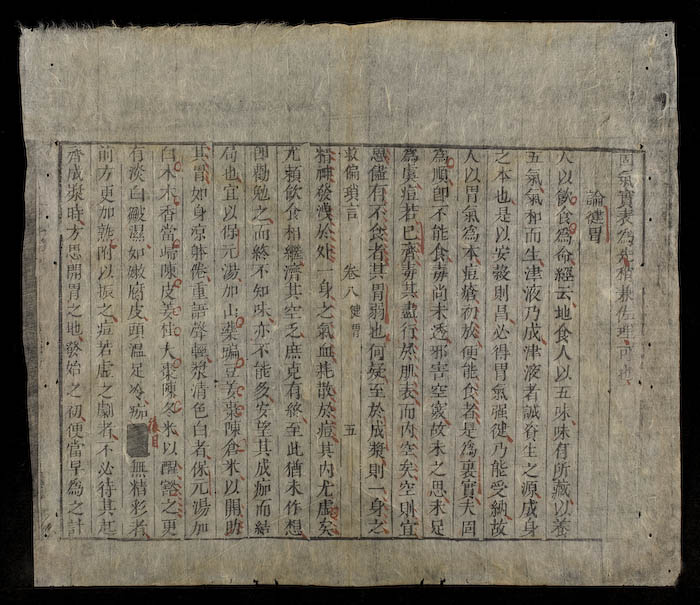 固氣實表為先補兼佐理可也
論健胃
人以飲食為命經云地食人以五味味有所藏以養
五氣氣和而生津液乃成津液者誠資生之源成身
之本也是以安穀則昌必得胃氣强健乃能受納故
人以胃氣為本痘瘡初於便能食者是為裏實夫固
為順卽不能食毒尚未透邪害空竅故未之思未足
為虞痘若已齊毒其盡行於肌表而內空矣空則宜
思儘有不食者其胃弱也何疑至於成漿則一身之
救偏瑣言
卷八健胃
五
精神發洩於外一身之氣血耗散於痘其內尤虛矣
尤賴飲食相繼濟其空乏庶克有終至此猶未作想
卽勸勉之而終不知味亦不能多安望其成痂而結
局也宜以保元湯加山藥扁豆姜棗陳倉米以開助
其胃如身凉軀倦重語聲輕漿清色白者保元湯加
白术木香當歸陳皮姜桂大棗陳冬米以醒豁之更
有淡白皺濕如嫩腐皮頭溫足冷痂無精彩者
前方更加熟附以振之痘若虛之劇者不必待其起
齊成漿時方思開胃之地發始之初便當早為之計